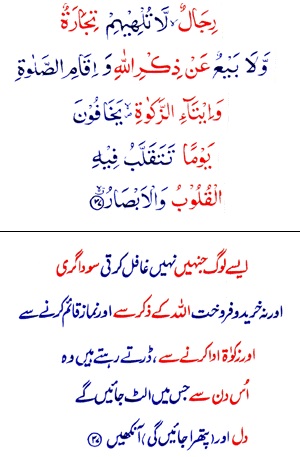 رِجَالٌ ۙ لَّا تُلْهِيْهِمْ تِجَارَةٌ
وَّلَا بَيْعٌ عَنْ ذِكْرِ اللّٰهِ وَ اِقَامِ الصَّلٰوةِ
وَاِيْتَآءِ الزَّكٰوةِ ۙ يَخَافُوْنَ
يَوْمًا تَتَقَلَّبُ فِيْهِ
الْقُلُوْبُ وَالْاَبْصَارُ ۙ ﴿۳۷﴾
ایسے لوگ جنہیں نہیں غافل کرتی سوداگری
اور نہ خرید و فروخت اللہ کے ذکر سے اور نماز قائم کرنے سے
اور زکوٰۃ ادا کرنے سے ، ڈرتے رہتے ہیں وہ
اُس دن سے جس میں الٹ جائیں گے
دل اور (پتھرا جائیں گی) آنکھیں ﴿۳۷﴾